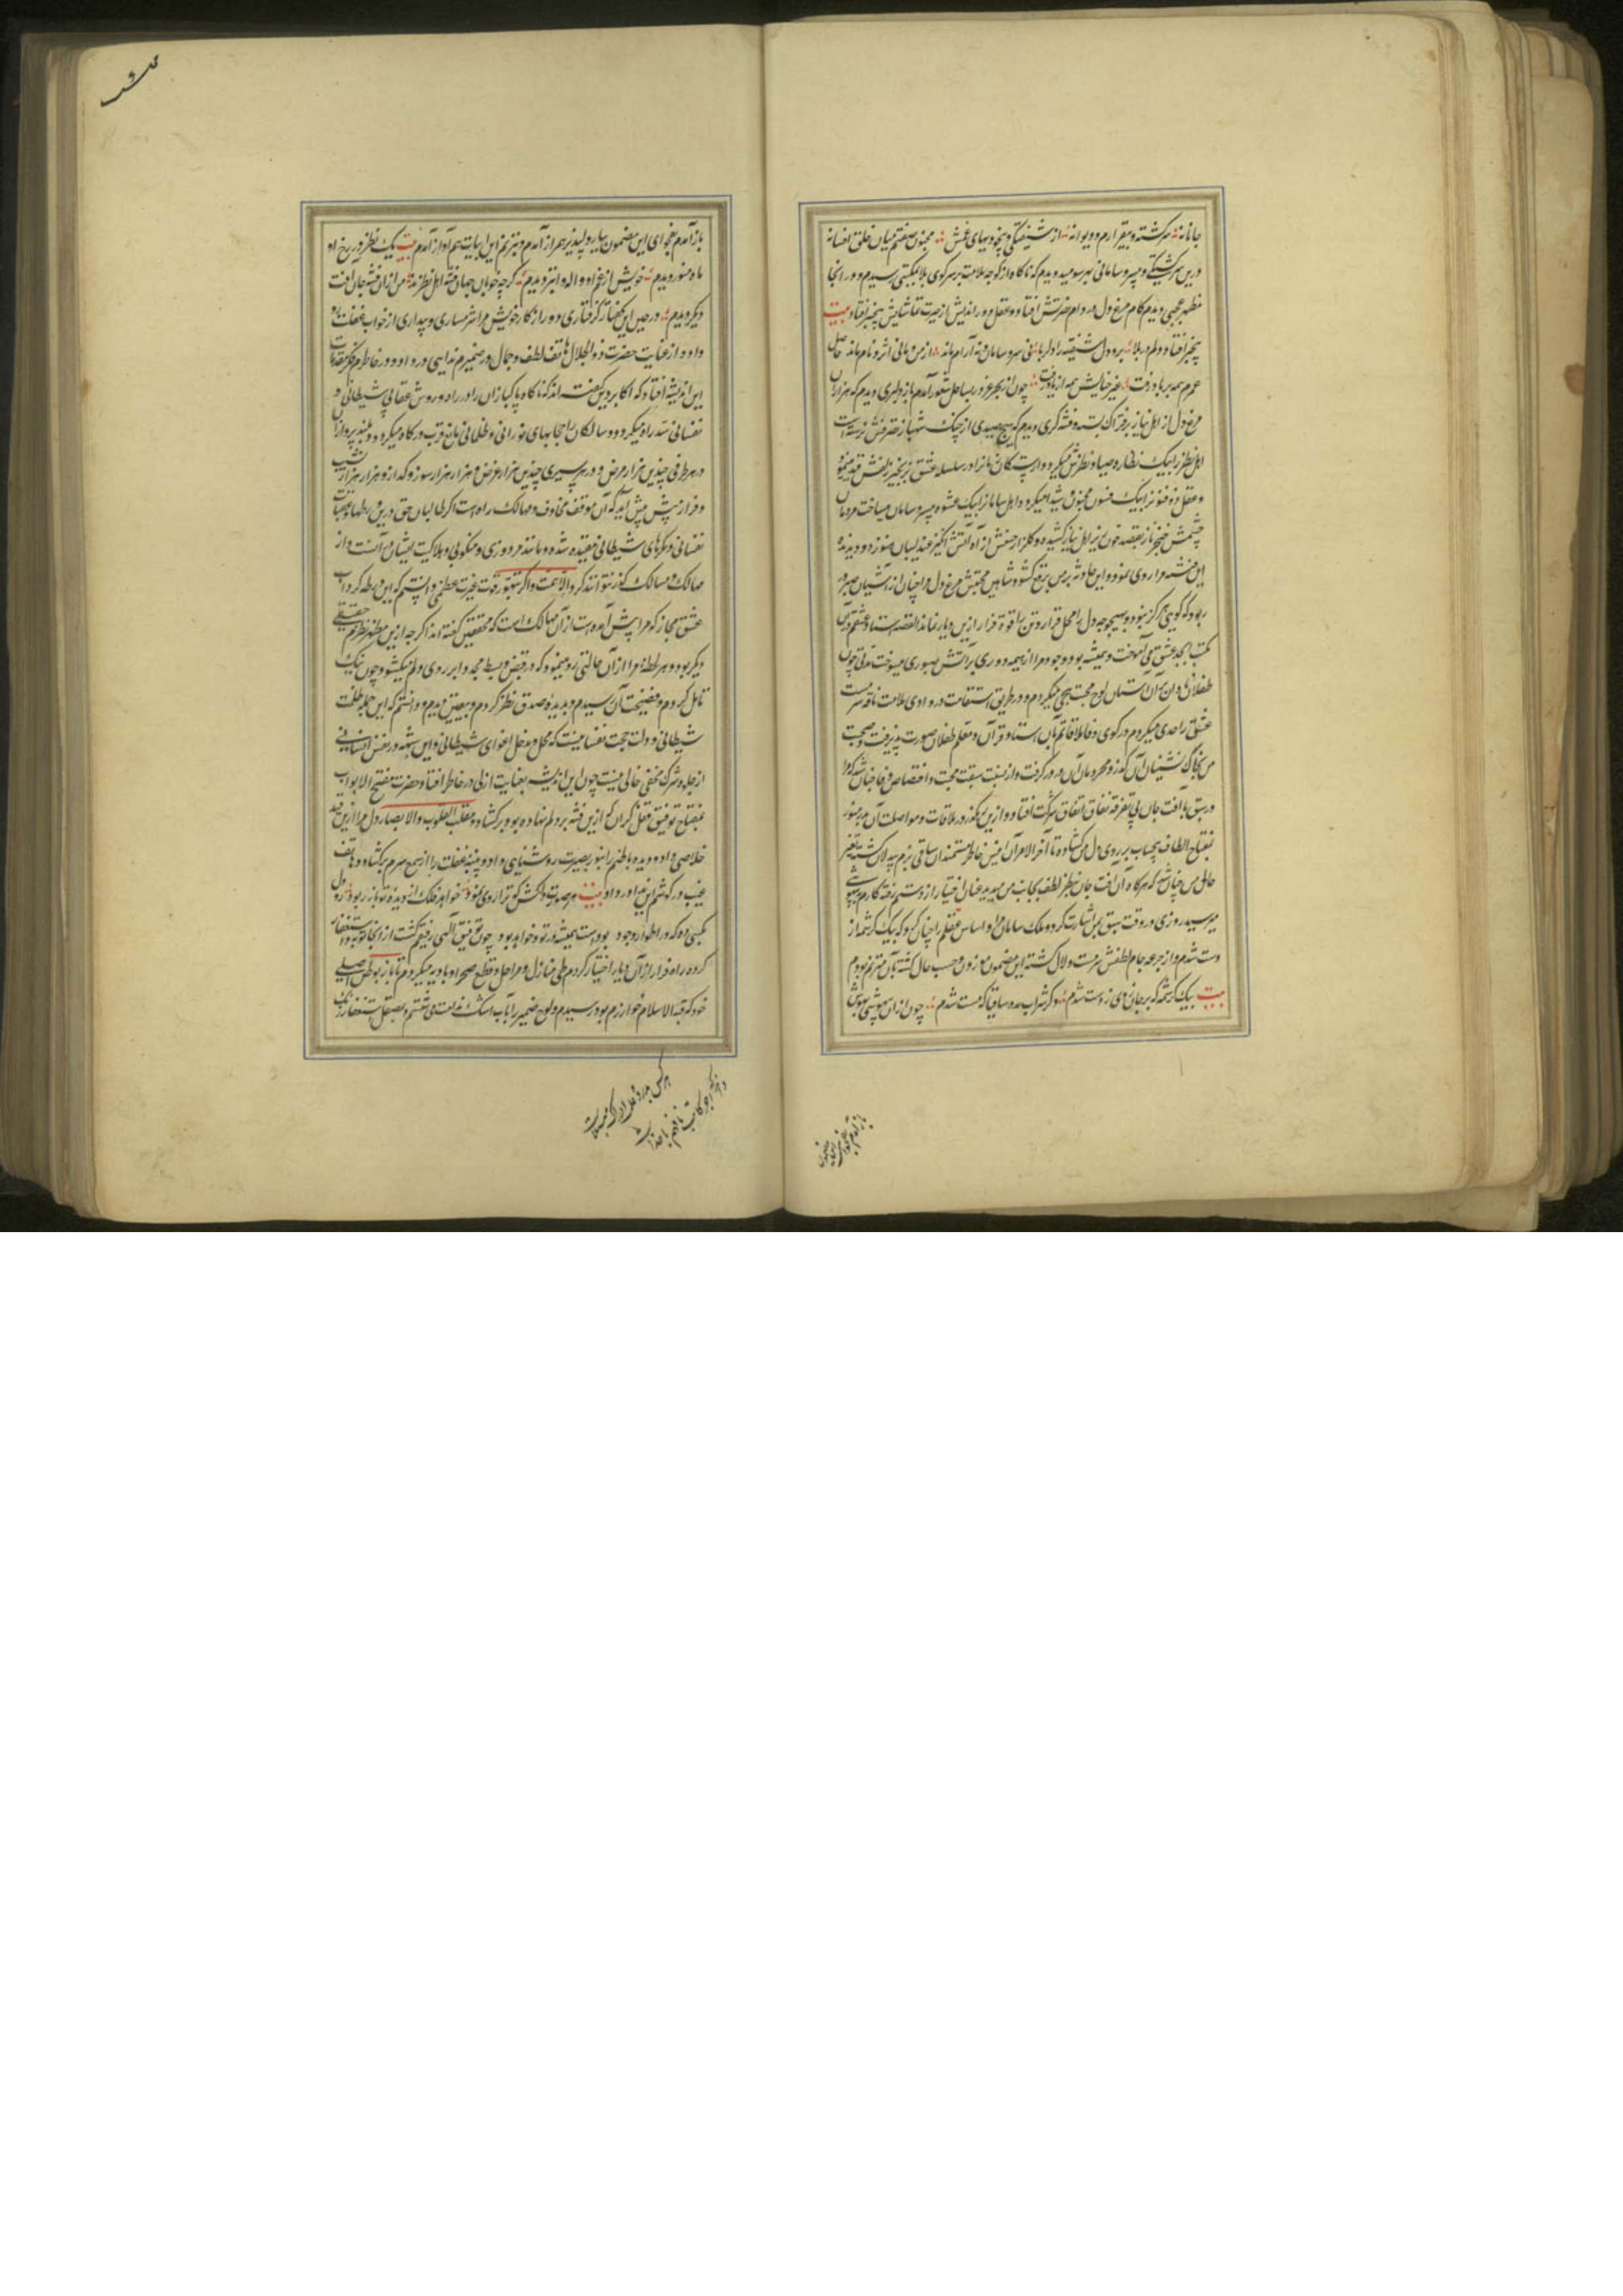 جانانه سرگشته و بیقرارم و دیوانه از شیفتگی و بیخودیهای عشق مجنون صفتم میان خلق افسانه
درین سرگشتگی و بیسر و سامانی بهر سو میدویدم که ناگاه از کوچه ملامت بر سر کوی بلا بمکتبی رسیدم و در آنجا
مظهر عجبی دیدم کام مرغ دول در دام افتاد و عقل دور اندیش از حیرت تماشایش بیخبر افتاد بیت
بیخبر افتاد و دلم در بلا برد دل شیفته را دلربا نی سر و سامان و نه آرام ماند از من و مانی اثر و نام ماند حاصل
عمرم همه بر باد رفت غیر خیالش همه از یاد رفت چون از بحر غرور بساحل شعور آمدم باز دلبری دیدم که هزاران
مرغ دل از اهل نیاز بر فتراک بسته و فتنه گری دیدم که هیچ صیدی از چنگ شهباز
اهل نظر را بیک نظاره صیاد نظرش میکرد و سلسله عشق بزنجیر زلفش قید مینمود
و عقل ذوفنون را بیک فسون مجنون و شیدا میکرد و اهل سامان را بیک عشوه بیسر و سامان میساخت مردمان
چشمش خنجر ناز بقصد خون ریز اهل نیاز کشیده و گلزار حسنش از آه آتش انگیز عندلیبان هنوز دود ندیده
این فتنه مرا روی نمود و این حادثه بر من برقع گشود شاهین محبتش مرغ دل مرا چنان از آشیان صبر
ربود که گویی هرگز نبود و بهیچوجه دل را محل قرار و تن را قوة فرار ازین دیار نماند القصه استاد عشقم در آن
مکتب ابجد عشق می آموخت و همیشه بود وجود مرا از هیمه دوری بر آتش صبوری میسوخت مدتی چون
طفلان نادان بر آن آستان لوح محبت هجی میکردم و در طریق استقامت در وادی ملامت ناقه سرمست
عشق را حدی میکردم در کوی وفا ملاقاتم بآن استاد قرآن و معلم طفلان صورت پذیرفت و صحبت
من بخاک نشینان آن کوز و محرومان آن در در گرفت و از نسبت سبقت محبت و اختصاص وفا چنان شد که مرا
در سبق با آفت جان بی تفرقه نفاق اتفاق شرکت افتاد و ازین رهگذر در ملاقات و مواصلت آن مه منور
بمفتاح الطاف بیحساب بر روی دل من گشاده تا آخر الامر آن انیس خاطر مستمندان ساقی بزم بیدلان گشته تغیر
حال من چنان شد که هرگاه آن آفت جان بنظر لطف بجانب من میدید عنان اختیار از دستم رفته کارم به بیهوشی
میرسید روزی در وقت سبق بمن اشارت کرد و ملک سامان مرا و اساس عقلم را چنان کرد که بیک کرشمه از
دست شدم و از جرعه جام لطفش سرمست و لال گشته این مضمون موزون و حسب حال گشته بآن مترنم بودم
بیت بیک کرشمه که بر جان زدی ز دست شدم دگر شراب مده ساقیا که مست شدم چون از آن بیهوشی بهوش
باز آمدم بفحوای این مضمون
باز آمدم بفحوای این مضمون بیار دلپذیر همراز آمدم و بترنم این ابیات هم آواز آمدم بیت یک نظر در رخ او
ماه منور دیدم خویش را از غم او واله و ابتر دیدم گرچه خوبان جهان فتنه اهل نظرند من از آن فتنه جان آفت
دیگر دیدم در حین این گفتار گرفتاری و در از کار خویش مرا شرمساری و بیداری از خواب غفلت رو
داده از عنایت حضرت ذوالجلال هاتف لطف و جمال در ضمیرم ندایی در داد و در خاطرم فکر مقدمات
این اندیشه افتاد که اکابر دین گفته اند که ناگاه پاکبازان را در راه روش عقابی شیطانی و
نفسانی سد راه میگردد و سالکان را حجابهای نورانی و ظلمانی مانع قرب درگاه میگردد و بلند پروازان
در هر طرفی چندین هزار مرض و در هر سیری چندین هزار غرض و هزار هزار سوز و گداز و هزار هزار نشیب
و فراز پیش پیش آید که آن موقف مخاوف و مهالک راه است اگر طالبان حق درین ورطها و عقبات
نفسانی و مکرهای شیطانی مقیده شده و بمانند فردوزی و منکوبی و هلاکیت ایشان در آنست و از
مهالک و مسالک گذر نتوانند کرد الا بهمت و اگر بتهور غیرت عظمی دانستم که این ورطه گرداب
عشق مجاز که مرا پیش آمده است از آن مهالک است که محققین گفته اند اگر چه ازین مظهر نظرم حقیقی
دیگر بود و هر لحظه مرا از آن حالتی رو مینمود که در قبض و بسط مجدد ابر روی دلم میگشود چون نیک
تامل کردم و فضیحت آن رسیدم و بدیده صدق نظر کردم و بیقین دیدم و دانستم که این حیله ظلمت
شیطانی و دولت حجت نفسانیست که محل و مدخل اغوای شیطانی و این شبهه در نفس انسانی
از جلد و شرک مخفی خالی نیست چون این اندیشه بعنایت ازلی در خاطر افتاد حضرت مفتح الابواب
بمفتاح توفیق قفل گران که ازین فتنه بر دلم نهاده بود برگشاد و مقلب القلوب والابصار دل مرا ازین قید
خلاصی داد و دیده باطنم را بنور بصیرت روشنایی داد و پنبه غفلت را از سمع سرم برگشاد و هاتف
غیب در گوشم این ندا در داد بیت هر صورت دلکش که ترا روی نمود خواهد فلک از دیده تو باز ربود رو دل
بکسی ده که در اطوار وجود بوده است همیشه در تو و خواهد بود چون توفیق الهی رفیقم گشت از آنجا توبه و استغفار
کرده راه فرار از آن دیار اختیار کردم طی منازل و مراحل و قطع صحرا و بادیه میکردم تا باز بوطن اصلی
خود که قبة الاسلام خوارزم بود رسیدم و لوح ضمیر را بآب اشک ندامت می شستم و بصیقل استغفار زنگ